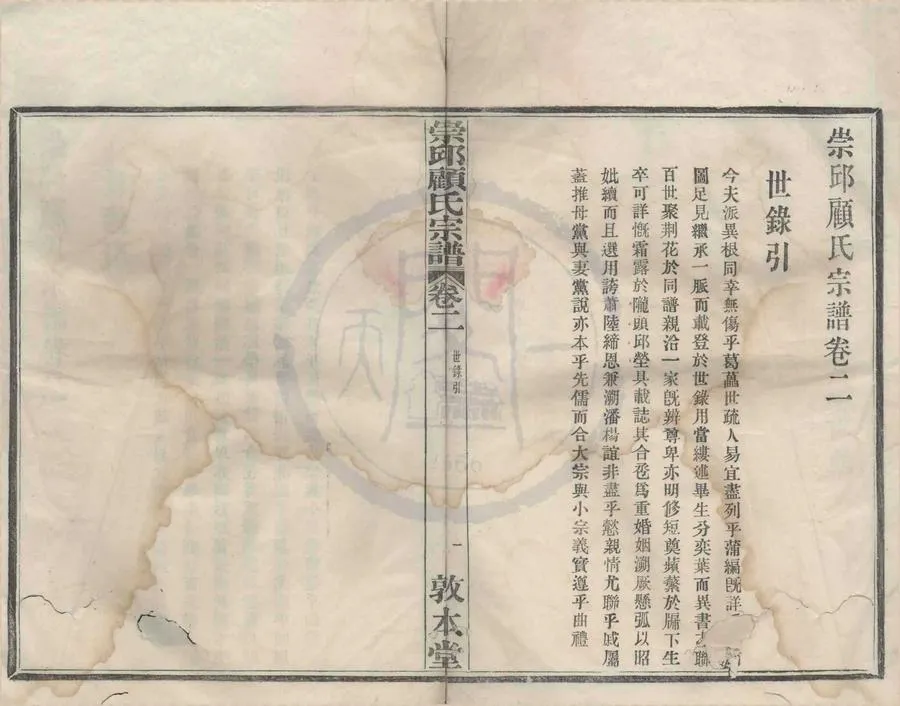 崇邱顧氏宗譜卷二
世錄引
今夫派異根同幸無傷乎葛藟世疏人易宜盡列乎蒲編旣詳
圖足見繼承一脈而載登於世錄用當縷述畢生分奕葉而異書 聯
百世聚荆花於同譜親洽一家旣辨尊卑亦明修短奠蘋蘩於牖下生
卒可詳慨霜露於隴頭邱塋具載誌其合卺爲重婚姻溯厥懸弧以昭
妣續而且選用誇蕭陸締恩兼溯潘楊誼非盡乎懿親情尤聯乎戚屬
蓋推母黨與妻黨說亦本乎先儒而合大宗與小宗義實遵乎曲禮
崇邱顧氏宗譜
卷二
世錄引
一
敦本堂